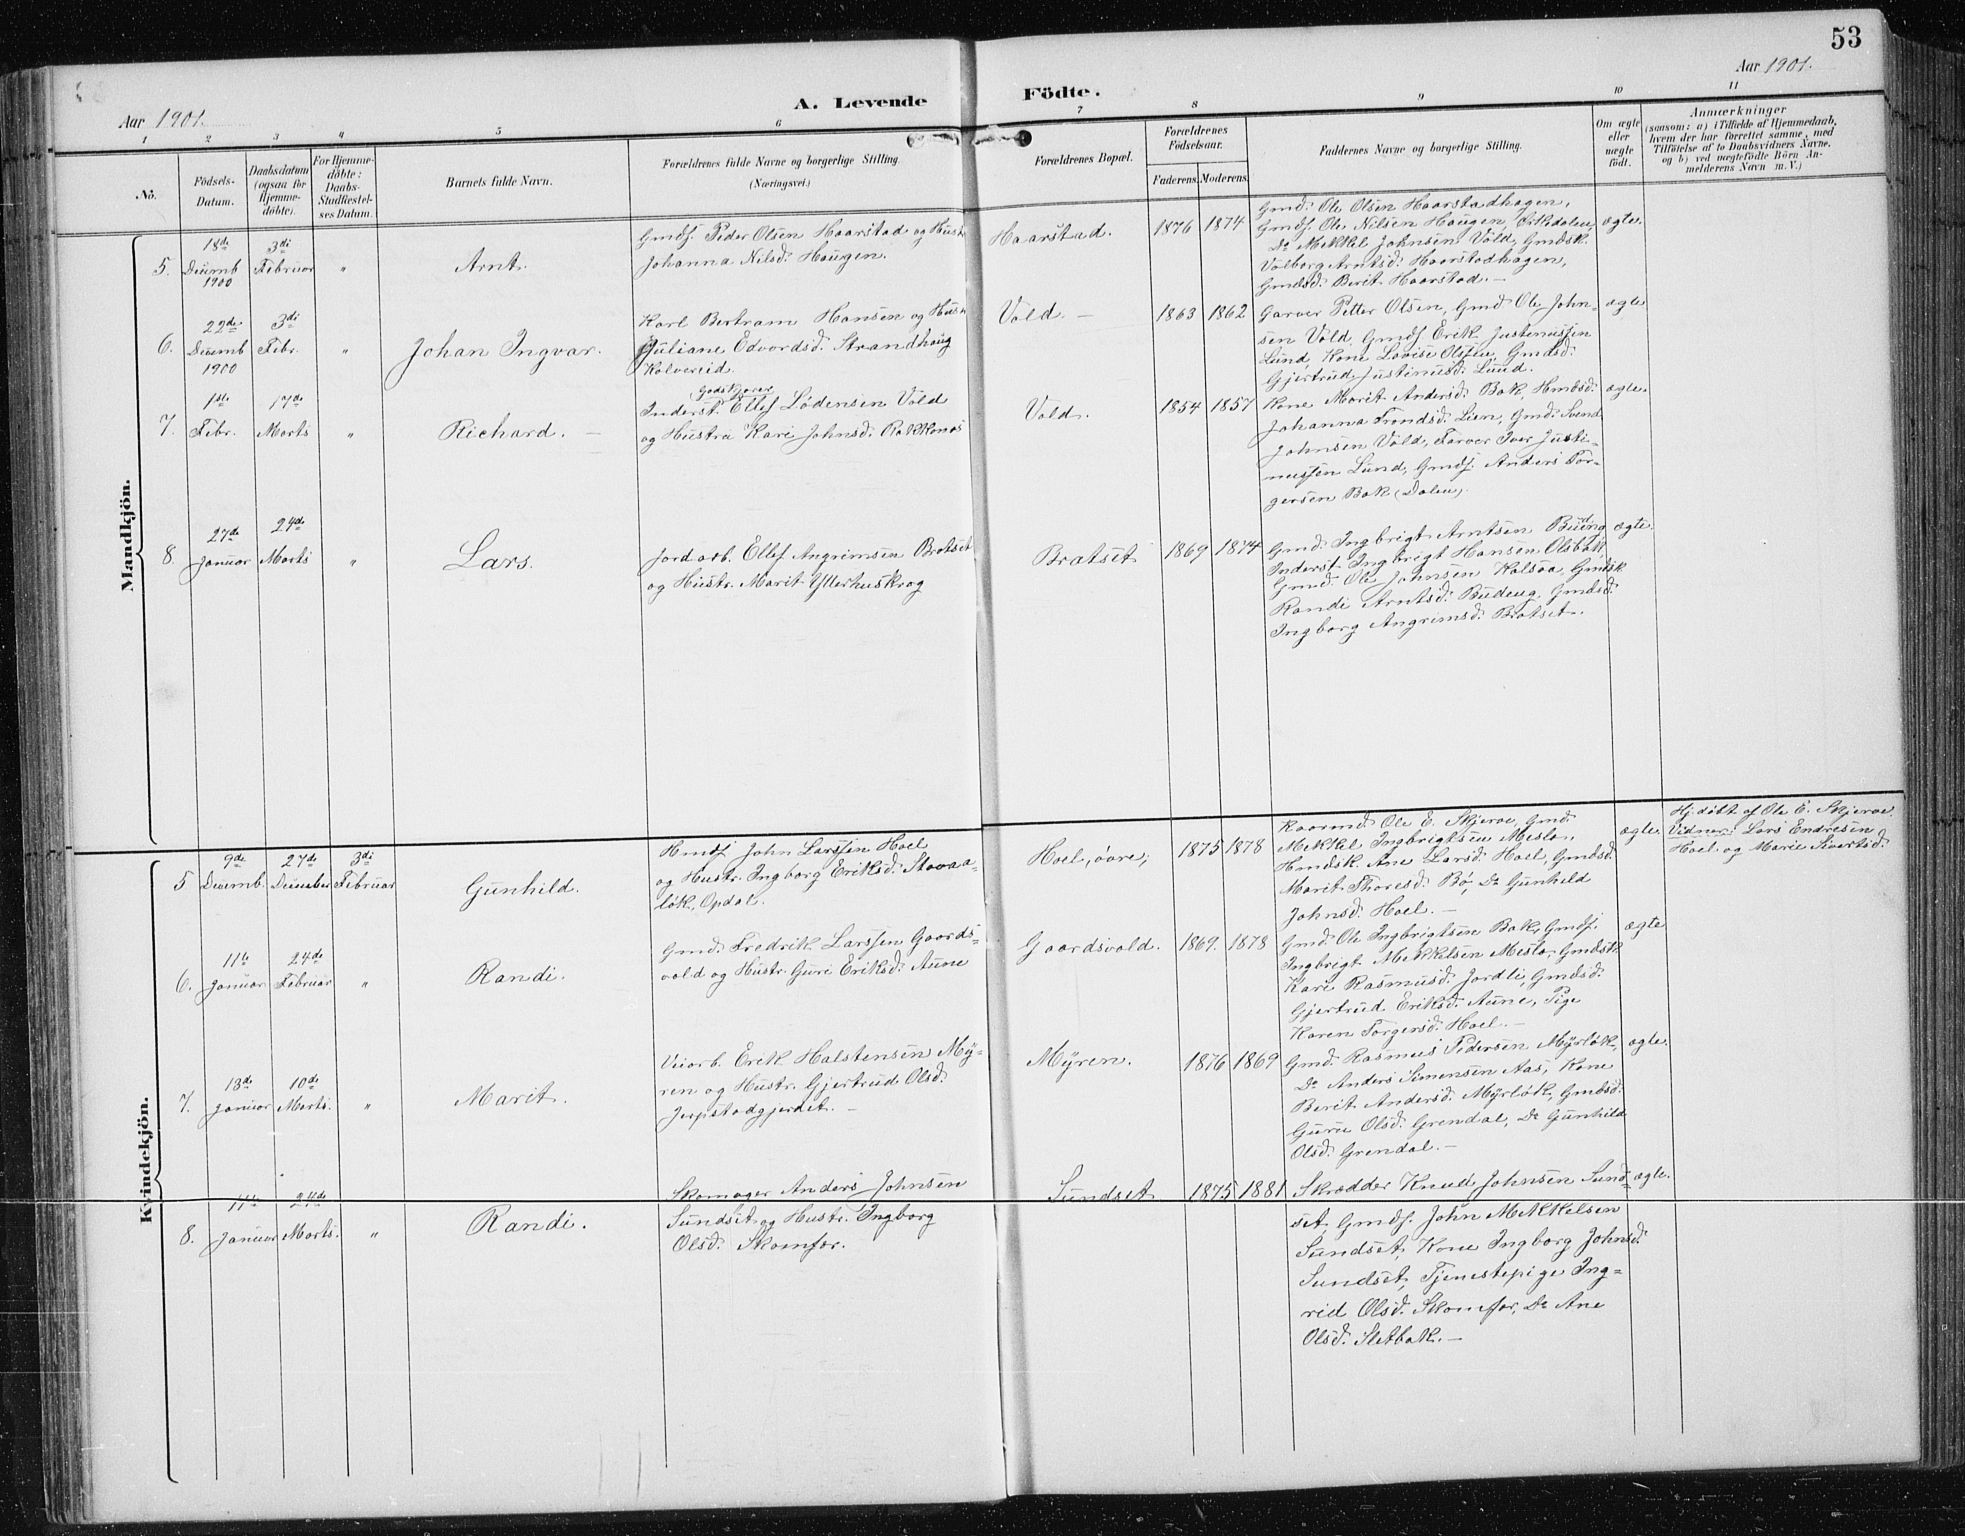 53
Aar 1901.
A. Levende Födte.
Aar 1901.
1 2 3 4 5 6 7 8 9 10 11
No.
Födsels-
Datum.
Daabsdatum
(ogsaa for
Hjemme-
döbte).
For Hjemme-
döbte:
Daabs-
Stadfæstel-
ses Datum.
Barnets fulde Navn.
Forældrenes fulde Navne og borgerlige Stilling
(Næringsvei.)
Forældrenes Bopæl.
Forældrenes
Födselsaar.
Faderens. Moderens.
Faddernes Navne og borgerlige Stilling.
Om ægte
eller
uægte
födt.
Anmærkninger
(saasom: a) i Tilfælde af Hjemmedaab,
hvem der har forrettet samme, med
Tilföielse af to Daabsvidners Navne,
og b) ved uægtefödte Börn An-
melderens Navn m. V.)
Mandkjön.
5.
18de
Decemb
1900
3di
Februar
"
Arnt.
Gmdf. Peder Olsen Haarstad og Hustr
Johanna Nilsd. Haugen.
Haarstad.
1876 1874
Gmd. Ole Olsen Haarstadhagen,
Gmdf. Ole Nilsen Haugen, Orkedalen,
Do Mekkel Johnsen Vold, Gmdsk.
Volborg Arntsd. Haarstadhagen,
Gmdsd. Berit Haarstad. —
ægte.
6.
22de
Decemb
1900
3di
Febr.
"
Johan Ingvar.
Karl Bertram Hansen og Hustr
Juliane Edvardsd. Strandhaug
Kolvereid.
Vold. —
1863 1862
Garver Petter Olsen, Gmd Ole John-
sen Vold, Gmdf. Erik Justenussen
Lund, Kone Lovise Olsen, Gmdsd.
Gjertrud Justinusd. Lund.
ægte
7.
1ste
Febr.
17de
Marts
"
Richard. —
Godskjører
Inderst. Ellef Lødensen Vold
og Hustru Kari Johnsd. Rokkones
Vold.
1854 1857
Kone Marit Andersd. Bak, Hmdsd.
Johanna Trondsd. Lien, Gmd. Svend
Johnsen Vold, Farver Iver Justi-
nussen Lund, Gmdf. Anders Tor-
gersen Bak (Dalen).
ægte.
8.
27de
Januar
24de
Marts
"
Lars.
Jordarb. Ellef Angrimsen Bratset
og Hustr. Marit Ytterhuskrog
Bratset
1869 1874
Gmd. Ingbrigt Arntsen Budeng
Inderst. Ingbrigt Hansen Olsbak
Gmd. Ole Johnsen Kalsaa, Gmdsk
Randi Arntsd. Budeng, Gmdsd.
Ingborg Angrimsd. Bratset.
ægte.
Kvindekjön.
5
9de
Decemb.
27de
December
3di
Februar
Gunhild.
Hmdf John Larssen Hoel
og Hustr. Ingborg Eriksd. Stavaa-
løk, Opdal.
Hoel, øvre,
1875 1878
Kaarmd. Ole E. Skjerve, Gmd.
Mekkel Ingbrigtsen Meslo,
Hmdsk Ane Larsd. Hoel, Gmdsd.
Marit Thoresd. Bø, Do Gunhild
Johnsd. Hoel. —
ægte.
Hj.døbt af Ole E. Skjerve.
Vidner: Lars Endresen
Hoel og Marie Sivertsd.
6.
11te
Januar
24de
Februar
"
Randi.
Gmd. Fredrik Larssen Gaards-
vold og Hustr. Guri Eriksd. Aune
Gaardsvold.
1869. 1878
Gmd. Ole Ingbrigtsen Bak, Gmdf.
Ingbrigt Mekkelsen Meslo, Gmdsk
Kari Rasmusd. Jordli, Gmdsd.
Gjertrud Eriksd. Aune, Pige
Karen Torgersd. Hoel. —
ægte
7.
13de
Januar
10de
Marts.
"
Marit.
Veiarb. Erik Halstensen My-
ren og Hustr. Gjertrud Olsd.
Jerpstadgjerdet. —
Myren.
1876 1869
Gmd. Rasmus Pedersen Myrløk,
Do Anders Simensen Aas, Kone
Berit Andersd. Myrløk, Gmdsd.
Guru Olsd. Grendal, Do Gunhild
Olsd. Grendal. —
ægte.
8.
11te
Januar
24de
Marts.
"
Randi.
Skomager Anders Johnsen
Sundset og Hustr. Ingborg
Olsd. Skamfer.
Sundset
1875 1881
Skrædder Knud Johnsen Sund-
set, Gmdf. John Mekkelsen
Sundset, Kone Ingborg Johnsd.
Sundset, Tjenestepige Ing-
rid Olsd. Skamfer, Do Ane
Olsd. Sletbak. —
ægte.